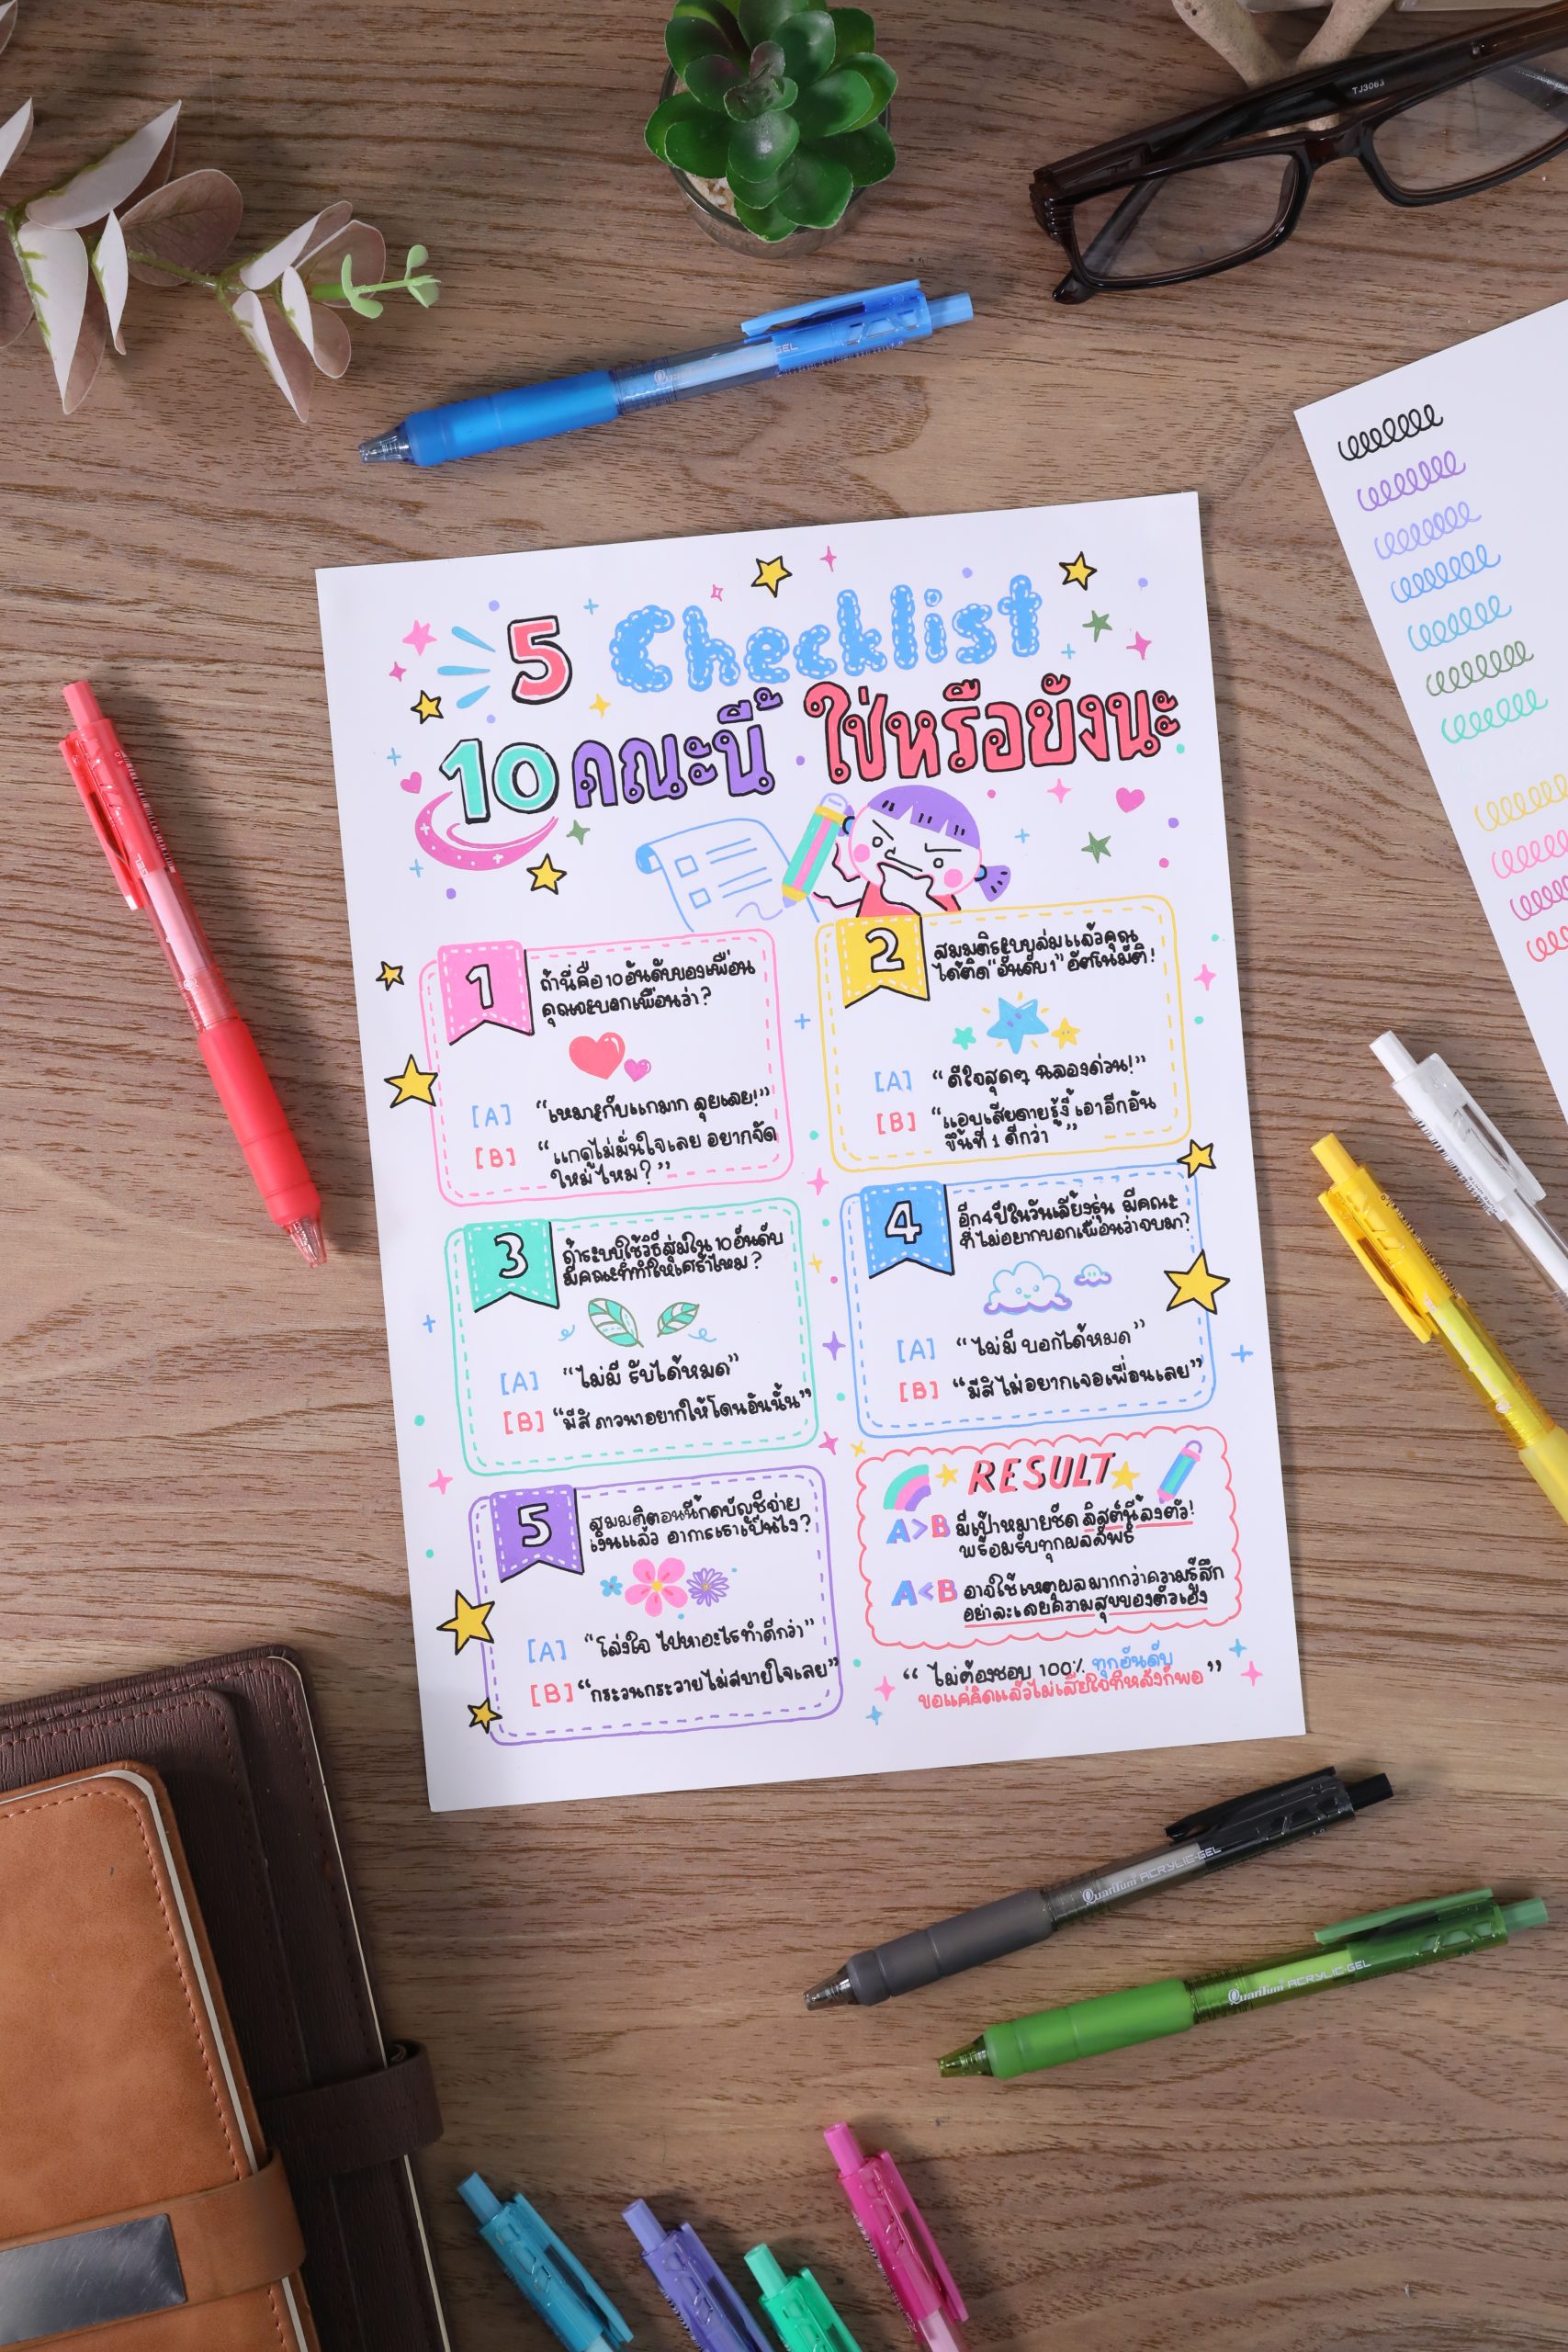 TJ3063
Quantum GEL
5 Checklist
10 คณะนี้ ใช่หรือยังนะ
1
ถ้านี่คือ 10 อันดับของเพื่อน
คุณจะบอกเพื่อนว่า?
[A] “เหมาะกับแกมาก ลุยเลย!”
[B] “แกดูไม่มั่นใจเลย อยากจัด
ใหม่ไหม?”
2
สมมติระบบล่มแล้วคุณ
ได้ติด “อันดับ 1” อัตโนมัติ!
[A] “ดีใจสุดๆ ฉลองด่วน!”
[B] “แอบเสียดายรู้งี้ เอาอีกอัน
ขึ้นที่ 1 ดีกว่า”
3
ถ้าระบบใช้วิธีสุ่มใน 10 อันดับ
มีคณะที่ทำให้เศร้าไหม?
[A] “ไม่มี รับได้หมด”
[B] “มีสิ ภาวนาอยากให้โดนอันนั้น”
4
อีก 4 ปีในวันเลี้ยงรุ่น มีคณะ
ที่ไม่อยากบอกเพื่อนว่าจบมา?
[A] “ไม่มี บอกได้หมด”
[B] “มีสิ ไม่อยากเจอเพื่อนเลย”
5
สมมติตอนนี้กดบัญชีจ่าย
เงินแล้ว อาการเราเป็นไง?
[A] “โล่งใจ ไปหาอะไรทำดีกว่า”
[B] “กระวนกระวาย ไม่สบายใจเลย”
RESULT
A>B มีเป้าหมายชัด ลิสต์นี้ลงตัว!
พร้อมรับทุกผลลัพธ์
A<B อาจใช้เหตุผลมากกว่าความรู้สึก
อย่าละเลยความสุขของตัวเอง
“ไม่ต้องชอบ 100% ทุกอันดับ
ขอแค่คิดแล้วไม่เสียใจทีหลังก็พอ”
Quantum ACRYLIC-GEL
Quantum ACRYLIC-GEL